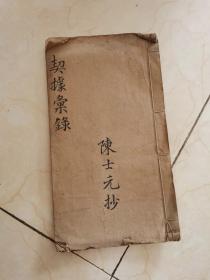 契據彙錄
陳士元抄